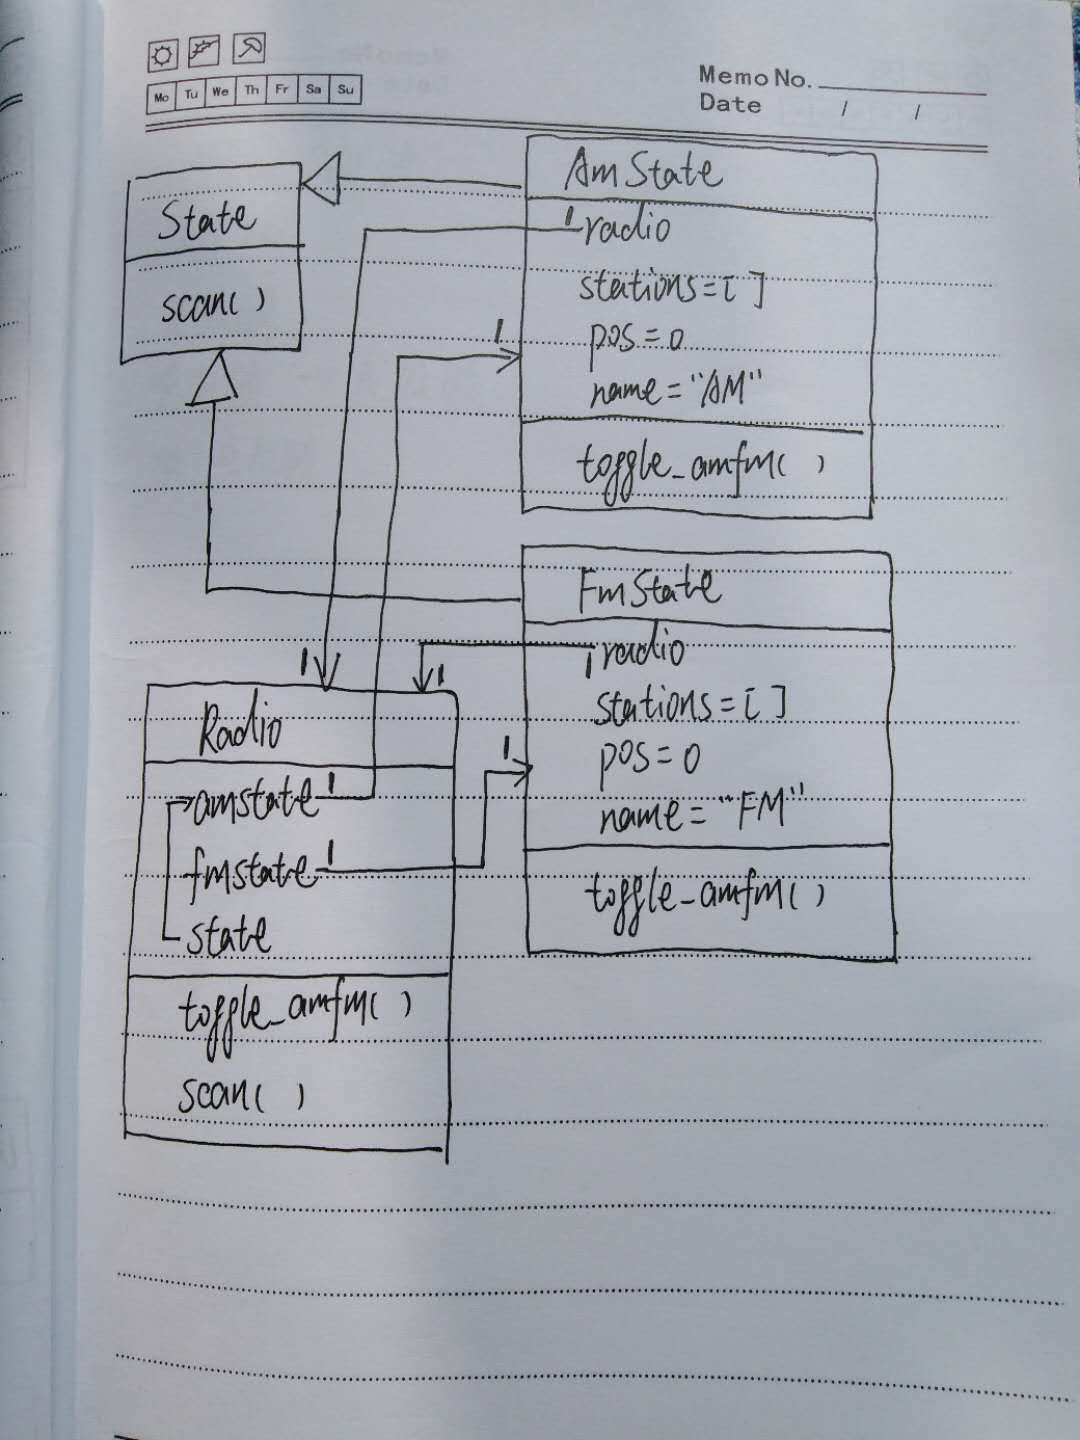 Mo Tu We Th Fr Sa Su
Memo No.
Date / /
State
scan( )
AmState
1 radio
stations=[ ]
pos=0
name="AM"
toggle_amfm( )
1
FmState
1 radio
stations=[ ]
pos=0
name="FM"
toggle_amfm( )
1
1 1
Radio
amstate 1
fmstate 1
state
toggle_amfm( )
scan( )